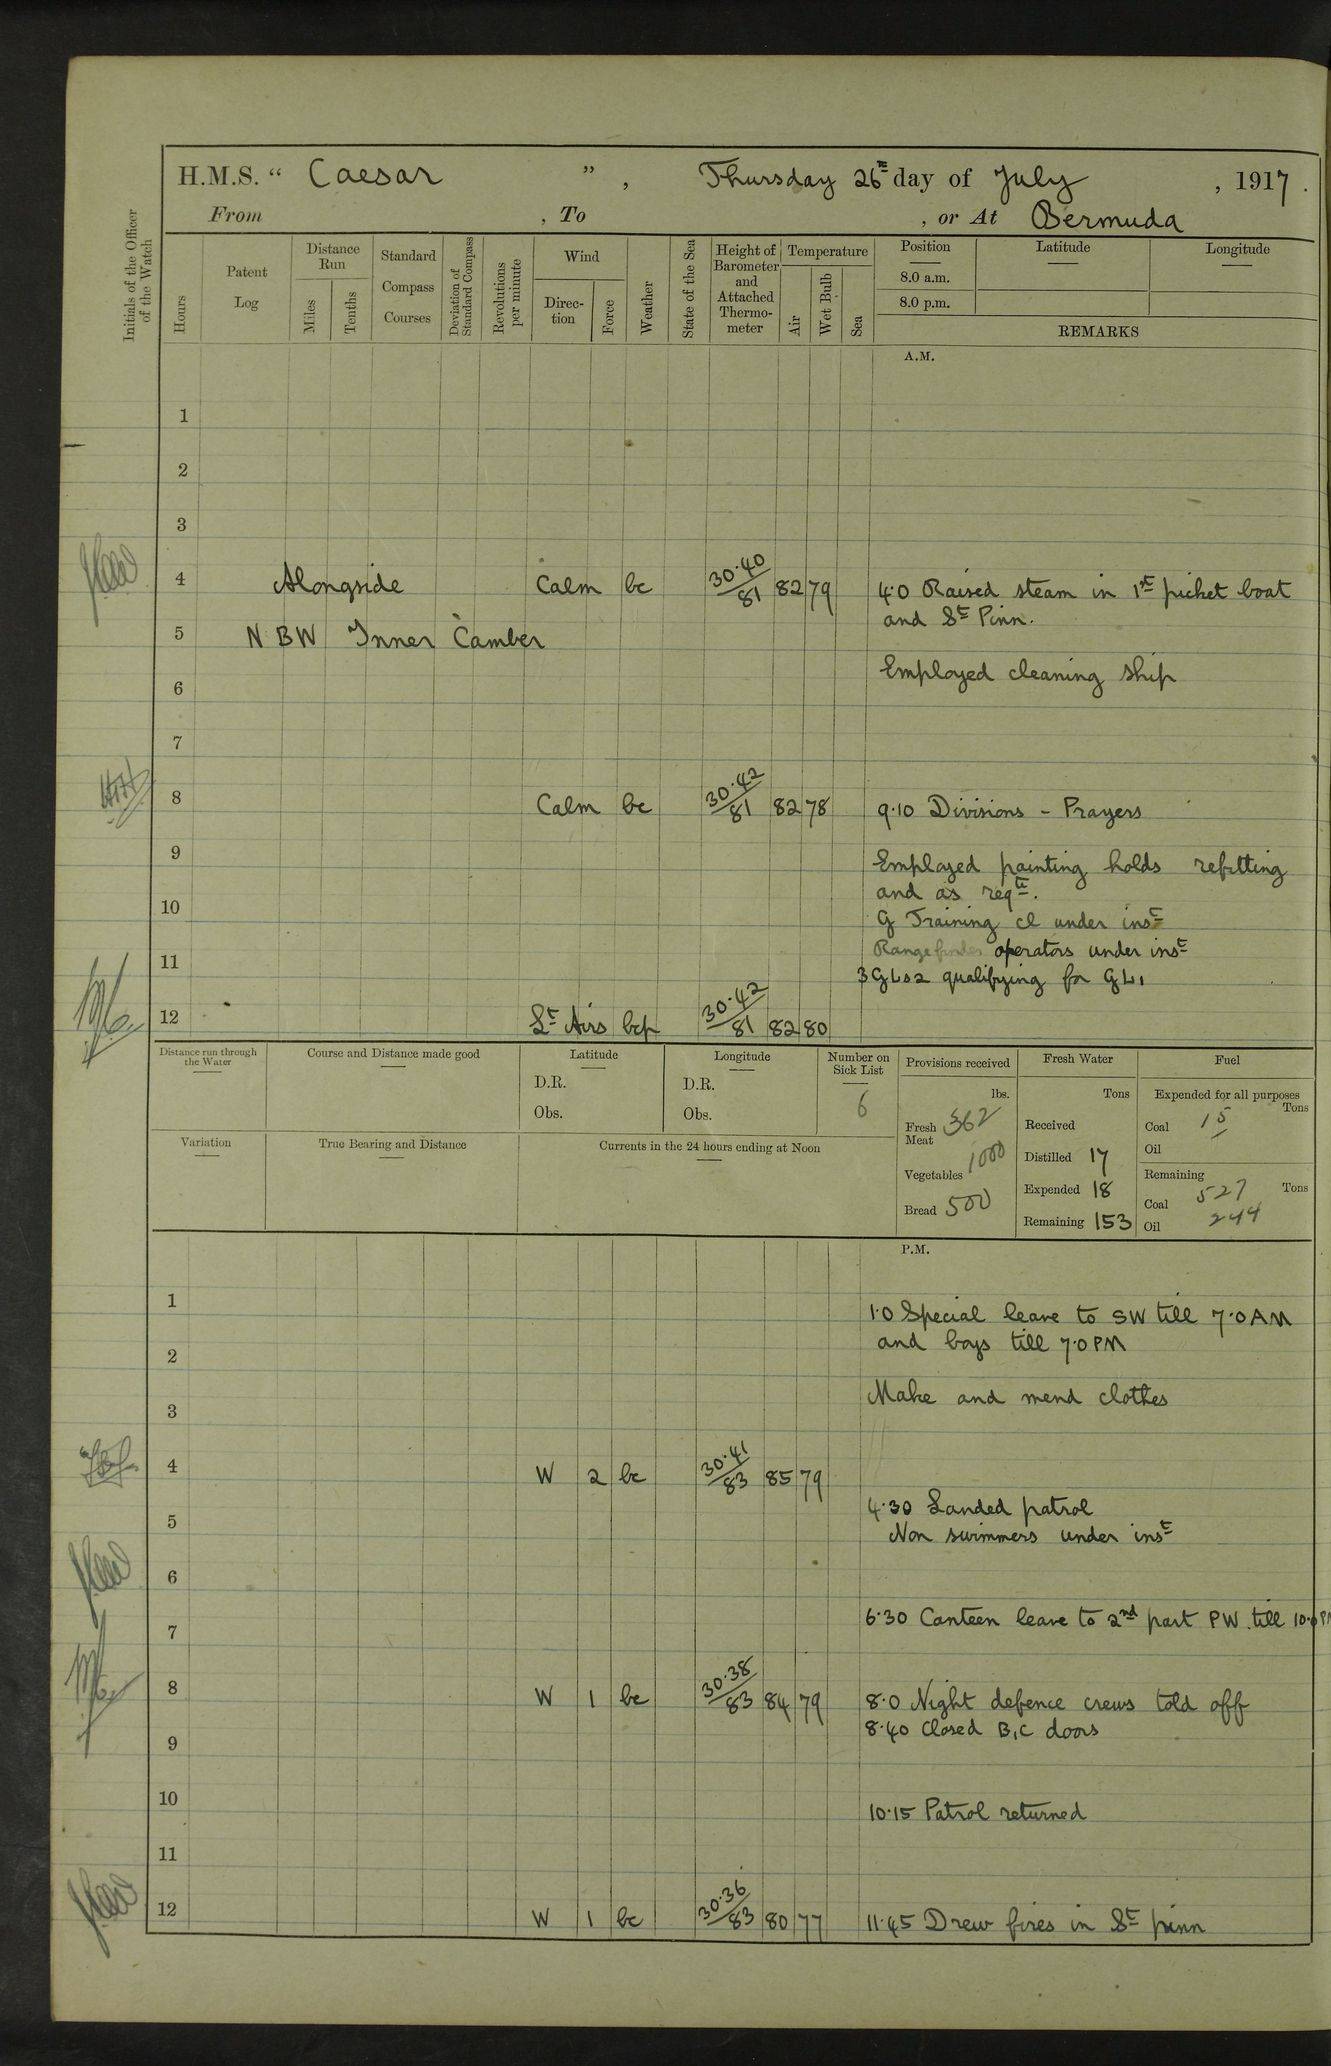 H.M.S. “ Caesar ” , Thursday 26th day of July , 1917 .
From , To , or At Bermuda
Initials of the Officer of the Watch
Hours
Patent Log
Distance Run
Miles
Tenths
Standard Compass Courses
Deviation of Standard Compass
Revolutions per minute
Wind
Direc-tion
Force
Weather
State of the Sea
Height of Barometer and Attached Thermo-meter
Temperature
Air
Wet Bulb
Sea
Position
8.0 a.m.
8.0 p.m.
Latitude
Longitude
REMARKS
A.M.
1
2
3
4 Alongside Calm bc 30.40/81 82 79 4.0 Raised steam in 1st picket boat
and St Pinn.
5 N BW Inner Camber
Employed cleaning ship
6
7
8 Calm bc 30.42/81 82 78 9.10 Divisions - Prayers
9 Employed painting holds refitting
and as reqte.
10 G Training cl under inst
Rangefinder operators under inst
11 3 GLs2 qualifying for GL1
12 Lt Airs bcp 30.42/81 82 80
Distance run through the Water
Course and Distance made good
Latitude
D.R.
Obs.
Longitude
D.R.
Obs.
Number on Sick List
6
Provisions received
lbs.
Fresh Meat 362
Vegetables 1000
Bread 500
Fresh Water
Tons
Received
Distilled 17
Expended 18
Remaining 153
Fuel
Expended for all purposes
Tons
Coal 15
Oil
Remaining
Tons
Coal 527
Oil 244
Variation
True Bearing and Distance
Currents in the 24 hours ending at Noon
P.M.
1 1.0 Special leave to SW till 7.0 AM
and boys till 7.0 PM
2
Make and mend clothes
3
4 W 2 bc 30.41/83 85 79
4.30 Landed patrol
5 Non swimmers under inst
6
6.30 Canteen leave to 2nd part PW till 10.0 PM
7
8 W 1 bc 30.38/83 84 79 8.0 Night defence crews told off
8.40 Closed B,C doors
9
10 10.15 Patrol returned
11
12 W 1 bc 30.36/83 80 77 11.45 Drew fires in St pinn